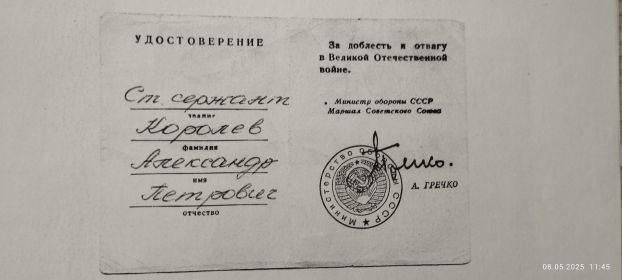 УДОСТОВЕРЕНИЕ
Ст. сержант
звание
Королев
фамилия
Александр
имя
Петрович
отчество
За доблесть и отвагу
в Великой Отечественной
войне.
Министр обороны СССР
Маршал Советского Союза
А. ГРЕЧКО
Министерство обороны СССР
08.05.2025 11:45